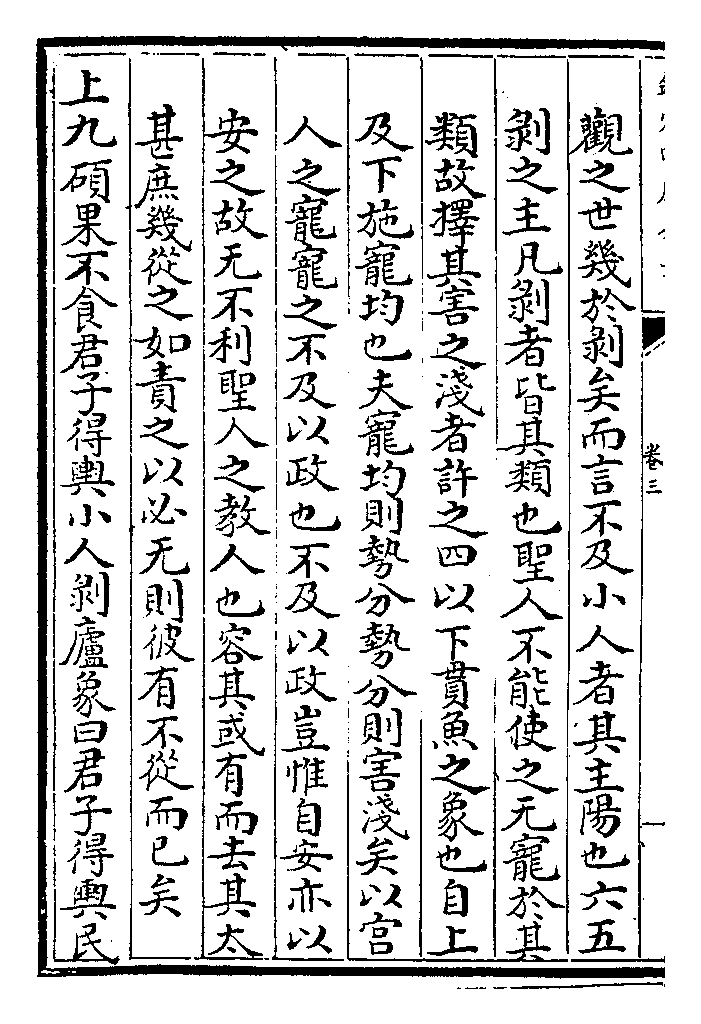 卷三
觀之世幾於剝矣而言不及小人者其主陽也六五
剝之主凡剝者皆其類也聖人不能使之无寵於其
類故擇其害之淺者許之四以下貫魚之象也自上
及下施寵均也夫寵均則勢分勢分則害淺矣以宮
人之寵寵之不及以政也不及以政豈惟自安亦以
安之故无不利聖人之教人也容其或有而去其太
甚庶幾從之如責之以必无則彼有不從而已矣
上九碩果不食君子得輿小人剝廬象曰君子得輿民